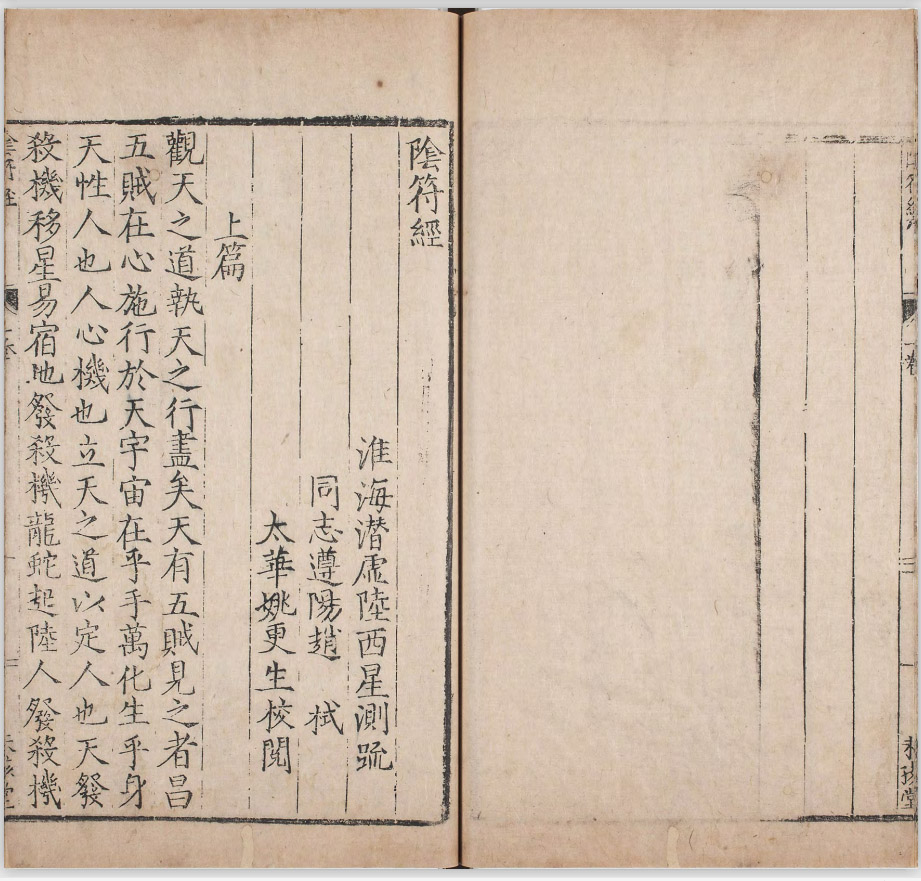 陰符經
淮海潜虛陸西星測疏
同志遵陽趙　栻
太華姚更生校閱
上篇
觀天之道執天之行盡矣天有五賊見之者昌
五賊在心施行於天宇宙在乎手萬化生乎身
天性人也人心機也立天之道以定人也天發
殺機移星易宿地發殺機龍蛇起陸人發殺機